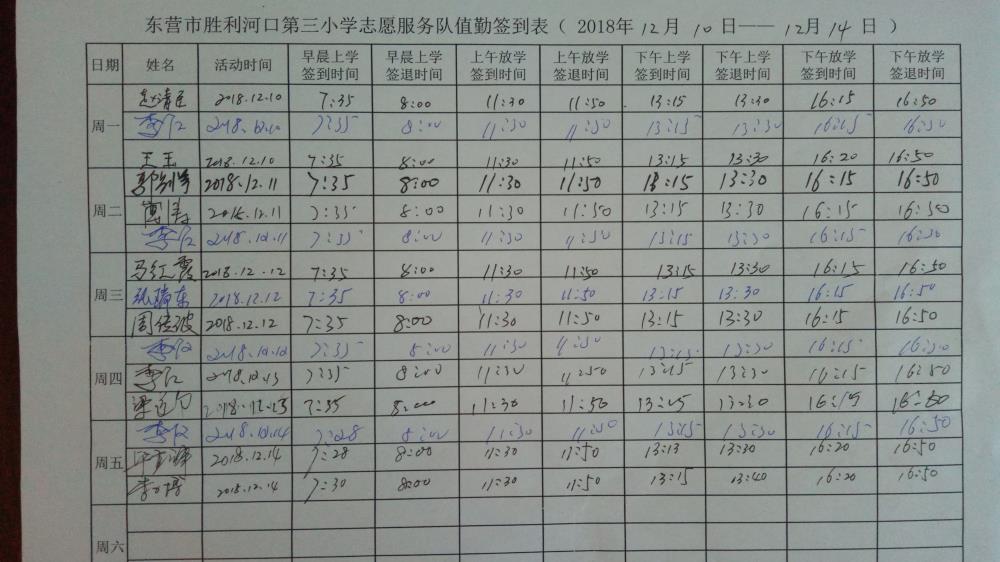 东营市胜利河口第三小学志愿服务队值勤签到表（ 2018年 12月 10日—— 12月 14日 ）
日期 姓名 活动时间 早晨上学签到时间 早晨上学签退时间 上午放学签到时间 上午放学签退时间 下午上学签到时间 下午上学签退时间 下午放学签到时间 下午放学签退时间
周一
2018.12.10 7:35 8:00 11:30 11:50 13:15 13:30 16:15 16:50
2018.12.10 7:35 8:00 11:30 11:50 13:15 13:30 16:15 16:50
王玉 2018.12.10 7:35 8:00 11:30 11:50 13:15 13:30 16:20 16:50
周二
2018.12.11 7:35 8:00 11:30 11:50 13:15 13:30 16:15 16:50
2018.12.11 7:35 8:00 11:30 11:50 13:15 13:30 16:15 16:50
2018.12.11 7:35 8:00 11:30 11:50 13:15 13:30 16:15 16:50
周三
马红霞 2018.12.12 7:35 8:00 11:30 11:50 13:15 13:30 16:15 16:50
张瑞东 2018.12.12 7:35 8:00 11:30 11:50 13:15 13:30 16:15 16:50
2018.12.12 7:35 8:00 11:30 11:50 13:15 13:30 16:15 16:50
周四
7:35 8:00 11:30 11:50 13:15 13:30 16:15 16:50
2018.12.13 7:35 8:00 11:30 11:50 13:15 13:30 16:15 16:50
7:35 8:00 11:30 11:50 13:30 16:50
周五
2018.12.14 7:28 8:00 11:30 11:50 13:15 13:30 16:15 16:50
2018.12.14 7:28 8:00 11:30 11:50 13:13 13:30 16:20 16:50
2018.12.14 7:30 8:00 11:30 11:50 13:15 13:40 16:20 16:50
周六